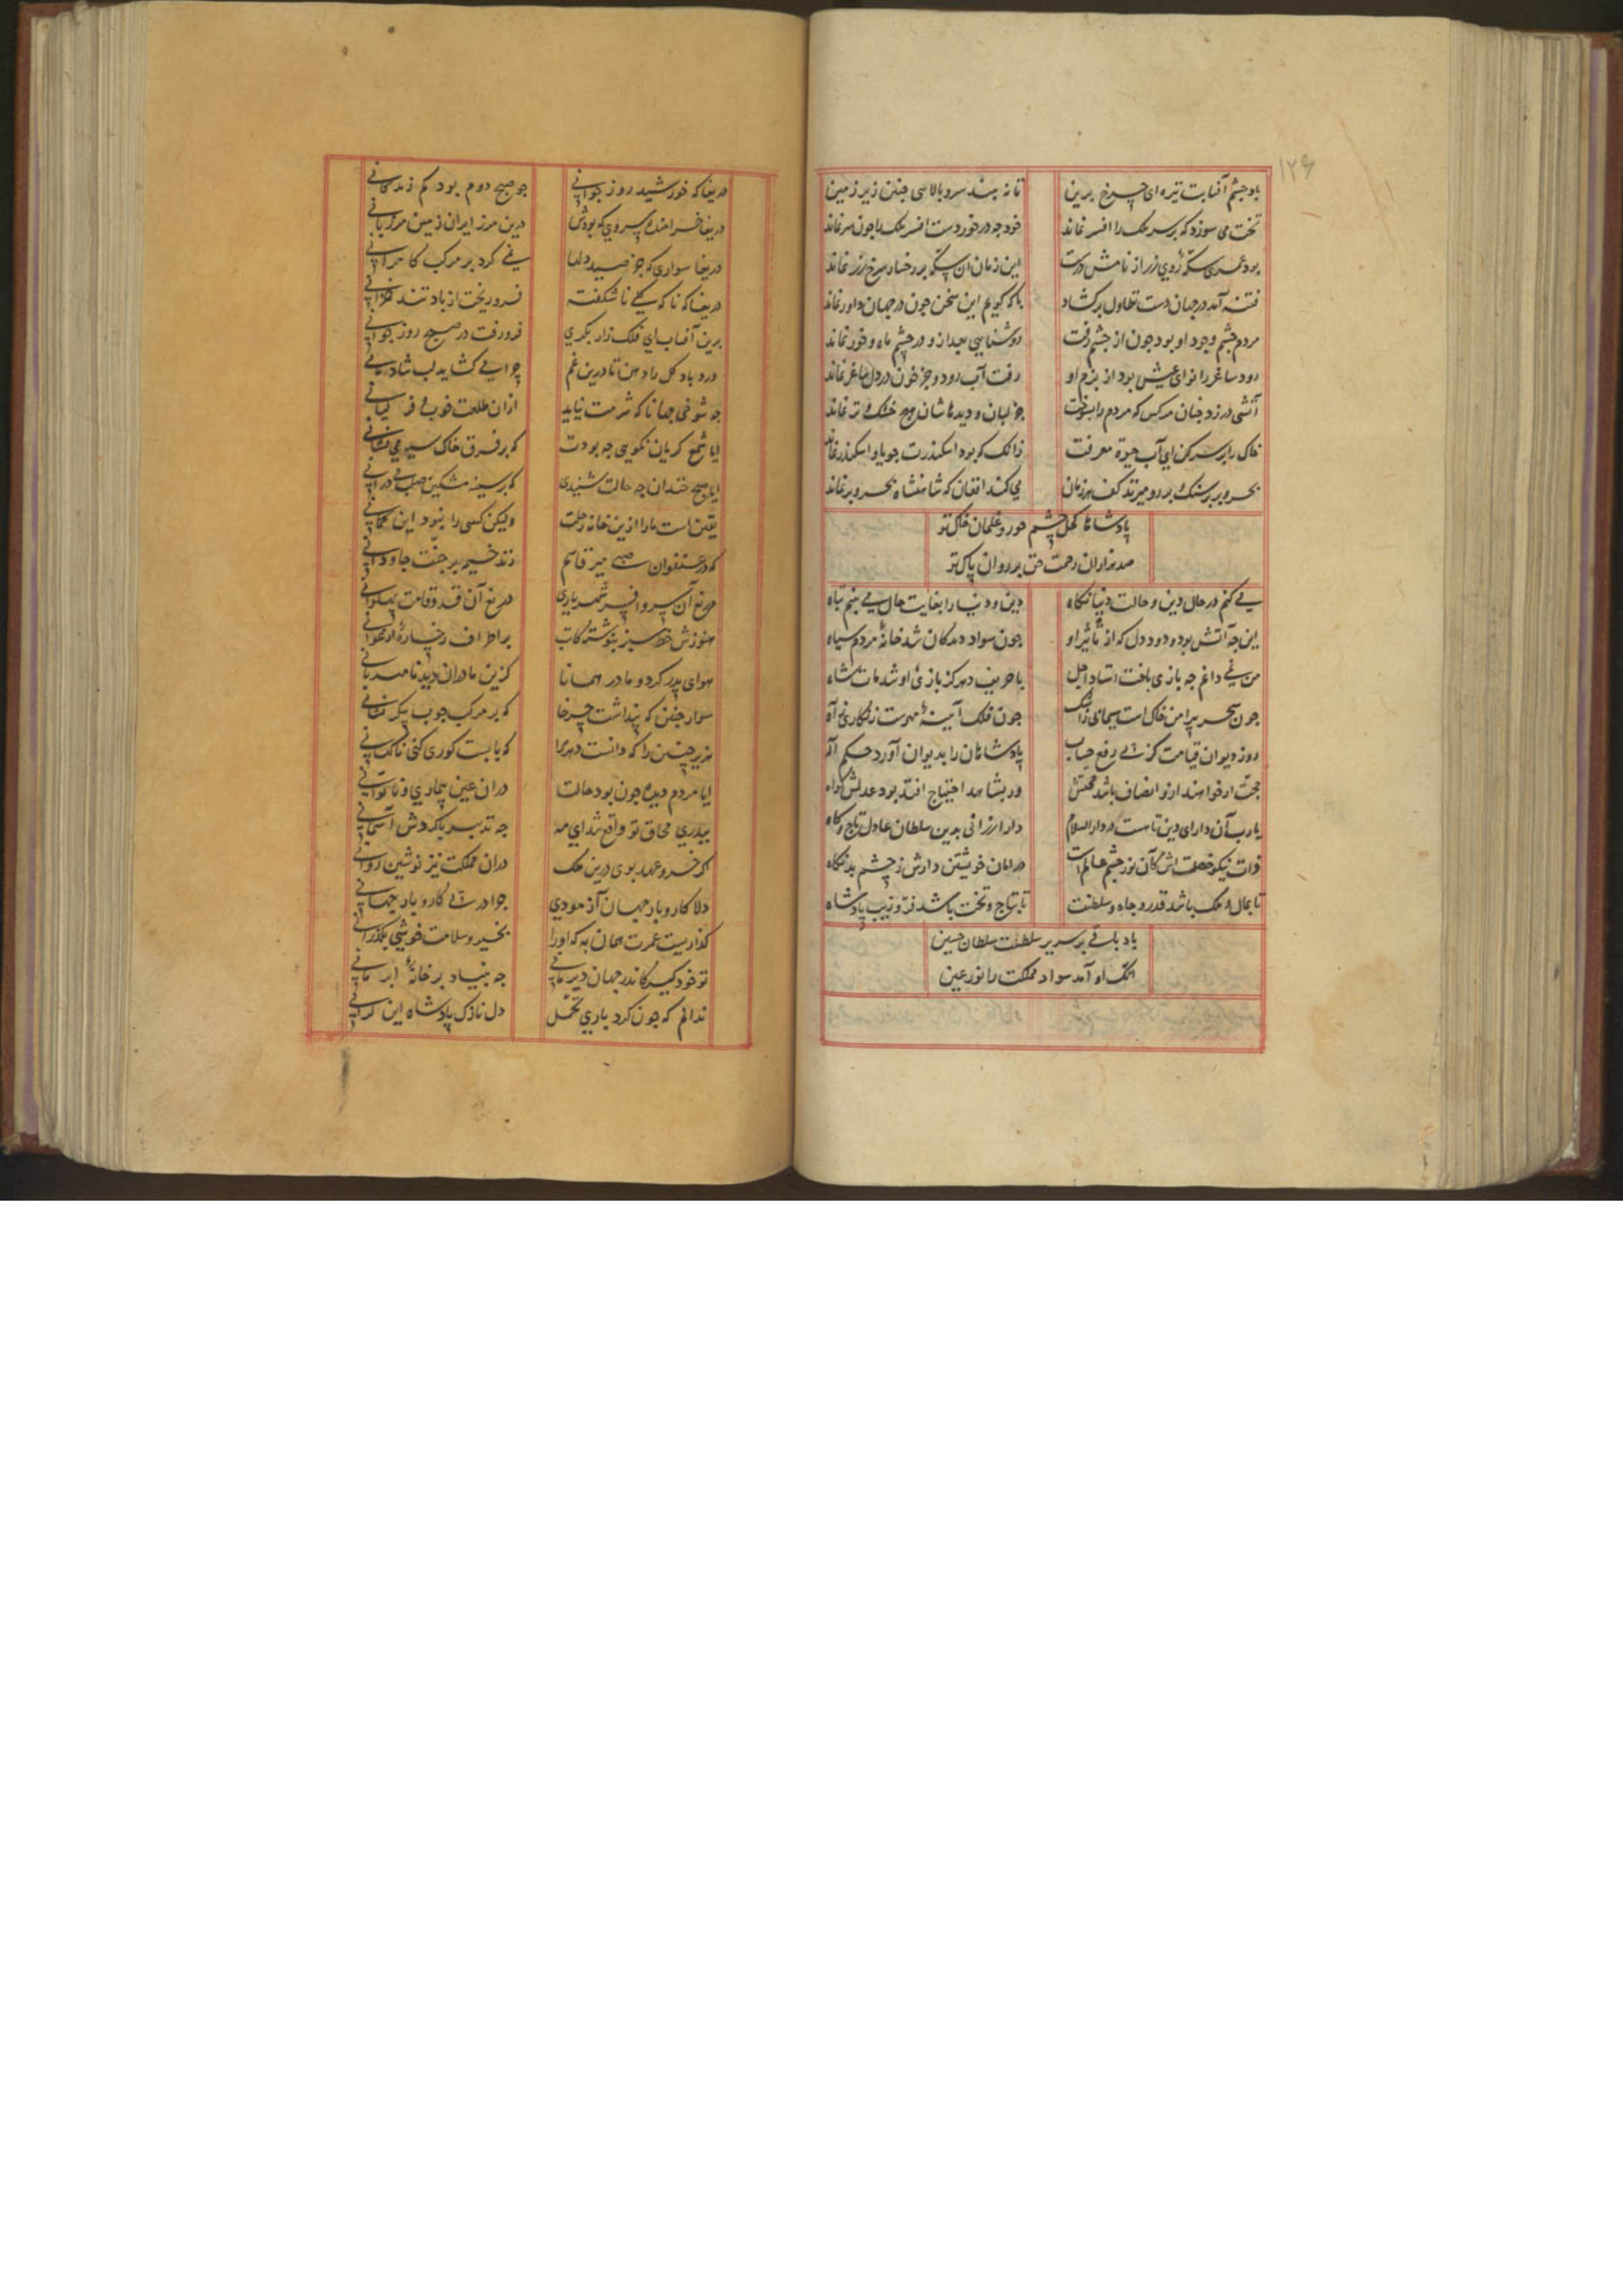 ۱۲۶
باد چشم آفتابت تیره ای چرخ برین تا نه بیند سرو بالایی چنین زیر زمین
تخت می سوزد که بر سر ملک را افسر نماند خود چه در خوردست افسر ملک را چون سر نماند
بود عمری سکه روی زر از نامش درست این زمان آن سکه بر رخسار سرخ زر نماند
فتنه آمد در جهان دست تطاول برکشاد با که کویم این سخن چون در جهان داور نماند
مردم چشم وجود او بود چون از چشم رفت روشنایی بعد ازو در چشم ماه و خور نماند
رود ساغر را نوای عیش بود از بزم او رفت آب رود و جز خون در دل ساغر نماند
آتشی در زد چنان مرکس که مردم را بسوخت جز لبان و دیده هاشان هیچ خشک و تر نماند
خاک را بر سر کن ای آب حیوة معرفت زانک که بود اسکندرت جویا و اسکندر نماند
بحر و بر بر سنک بر رو میزند کف هر زمان می کند افغان که شاهنشاه بحر و بر نماند
پادشاها کحل چشم حور و غلمان خاک تو
صد هزاران رحمت حق بر روان پاک تو
می کنم در حال دین و حالت دنیا نکاه دین و دنیا را بغایت حال می بینم تباه
این چه آتش بود و دود دل که از تأثیر او چون سواد دیدکان شد خانهٔ مردم سیاه
من نمی دانم چه بازی باخت استاد اجل با حریف دهر کز بازیٔ او شد مات شاه
چون سحر پیرامن خاک است سیمای چون فلک آیینهٔ مهرست زنکاری ز آه
روز دیوان قیامت کز پی رفع حساب پادشاهان را بدیوان آورد حکم اله
حجت ار خواهند ازو انصاف باشد حجتش ور بشاهد احتیاج افتد بود عدلش کواه
یارب آن دارای دین تا هست در دارالسلام دار ارزانی بدین سلطان عادل تاج و کاه
ذات نیکو خصلت اش کآن نور چشم عالم است در امان خویشتن دارش ز چشم بد نکاه
تا بمال و ملک باشد قدر و جاه و سلطنت تا بتاج و تخت باشد فر و زیب پادشاه
باد باقی بر سریر سلطنت سلطان حسین
انک او آمد سواد مملکت را نور عین
دریغا که خورشید روز جوانی چو صبح دوم بود کم زندکانی
دریغا خرامنده سروی که بودش درین مرز ایران زمین مرزبانی
دریغا سواری که جز صید دلها نمی کرد بر مرکب کامرانی
دریغا که ناکه کلی ناشکفته فرو ریخت از باد تند خزانی
برین آفتاب ای فلک زار بکری فرو رفت در صبح روز جوانی
درد باد کل را دهن تا درین غم چرا می کشاید لب شادمانی
چه شوخی جهانا که شرمت نیاید از آن طلعت خوب و فر کیانی
ایا شمع کریان نکویی چه بودت که بر فرق خاک سیه می نشانی
ایا صبح خندان چه حالت شنیدی که بر سینه مشکین می درانی
یقین است ما را ازین خانه رحلت ولیکن کسی را نبود این کمانی
که در عنفوان میر قاسم زند خیمه بر جنت جاودانی
دریغ آن سر و افسر شهریاری دریغ آن قد و قامت پهلوانی
هنوزش خط سبز ننوشته کاتب بر اطراف رخسارهٔ ارغوانی
هوای پدر کرد و مادر همانا کزین مادران دید نامهربانی
سوار چنین که پنداشت چرخا که بر مرکب چوب پیکر نشانی
هزیر چنین را که دانست دهرا که بایست کوری کنی ناکهانی
ایا مردم دیده چون بود حالت در آن عین بیماری و ناتوانی
ببدری محاق تو واقع شد ای مه چه تدبیر با کردش آسمانی
اکر خسرو عهد بوی درین ملک در آن مملکت نیز نوشین روانی
دلا کار و بار جهان آزمودی چرا در پی کار و بار جهانی
کذاریست عمرت همان به که اورا بخیر و سلامت خوشی بکذرانی
تو خود کیر کاندر جهان دیر مانی چه بنیاد بر خانهٔ ایرمانی
ندانم که چون کرد باری تحمل دل نازک پادشاه این کرانی